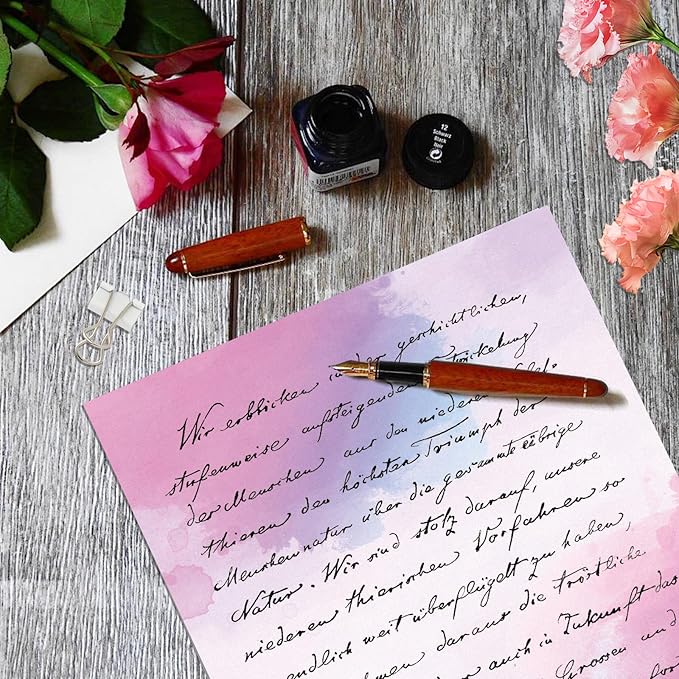 12
Schwarz
Black
Noir
Wir erblicken in der geschichtlichen,
stufenweise aufsteigenden Entwickelung
der Menschen aus den niederen
thieren den höchsten Triumph der
Menschennatur über die gesammte übrige
Natur. Wir sind stolz darauf, unsere
niederen thierischen Vorfahren so
endlich weit überflügelt zu haben,
daraus die tröstliche
auch in Zukunft das
Grossen und